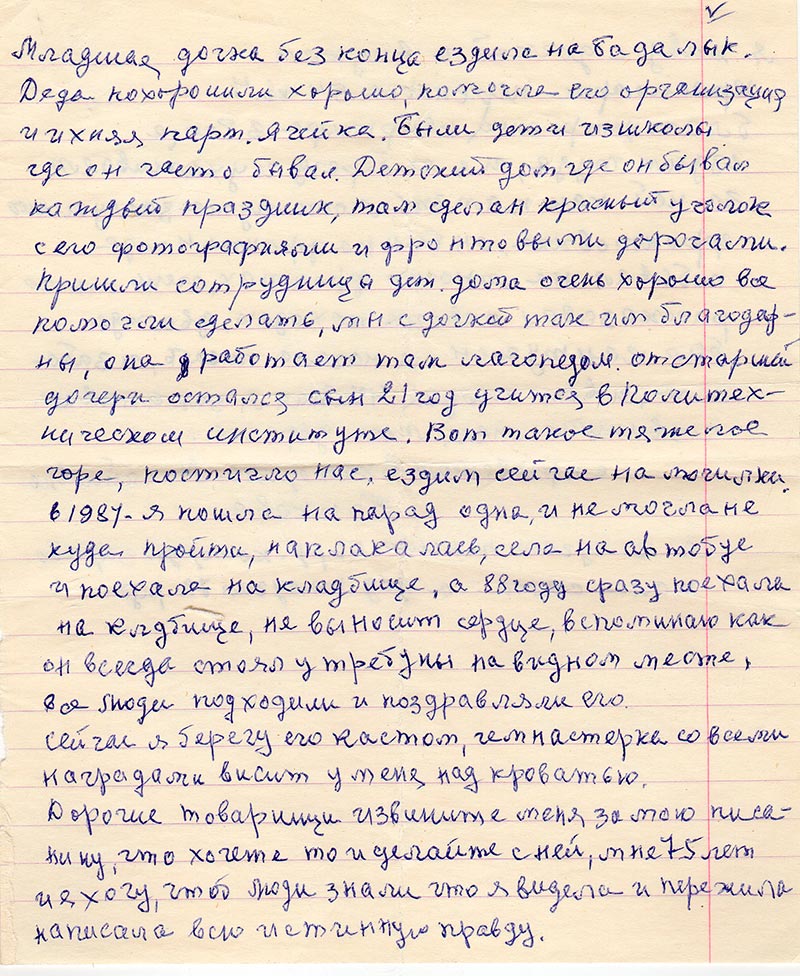 Младшая дочка без конца ездила на Бадалык.
Деда похоронили хорошо, помогла его организация
и ихняя парт. ячейка. Были дети из школы
где он часто бывал. Детский дом где он бывал
каждый праздник, там сделан красный уголок
с его фотографиями и фронтовыми дорогами.
Пришли сотрудницы дет. дома очень хорошо все
помогли сделать, мы с дочкой так им благодар-
ны, она работает там лагопедом. от старшей
дочери остался сын 21 год учится в Политех-
ническом институте. Вот такое тяжелое
горе, постигло нас, ездим сейчас на могилки.
в 1987- я пошла на парад одна, и не могла не
куда пройти, наплакалась, села на автобус
и поехала на кладбище, а 88 году сразу поехала
на клдбище, не выносит сердце, вспоминаю как
он всегда стоял у требуны на видном месте,
все люди подходили и поздравляли его.
сейчас я берегу его кастюм, гемнастерка со всеми
наградами висит у меня над кроватью.
Дорогие товарищи извините меня за мою писа-
нину, что хочете то и делайте с ней, мне 75 лет
и я хочу, чтоб люди знали что я видела и пережила
написала всю истинную правду.